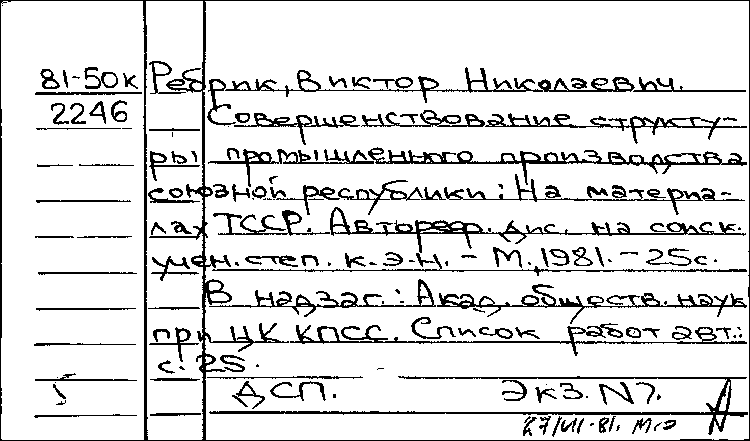 81-50к Ребрик, Виктор Николаевич.
2246 Совершенствование структу-
ры промышленного производства
союзной республики: На материа-
лах ТССР. Автореф. дис. на соиск.
учен. степ. к.э.н. - М., 1981. - 25с.
В надзаг.: Акад. обществ. наук
при ЦК КПСС. Список работ авт.:
с. 25.
ДСП. Экз. N7.
27/VII-81.